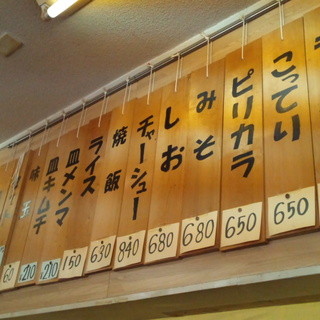 こってり
650
ピリカラ
650
みそ
680
しお
680
チャーシュー
840
焼飯
630
ライス
150
皿メンマ
210
皿キムチ
210
味玉
60